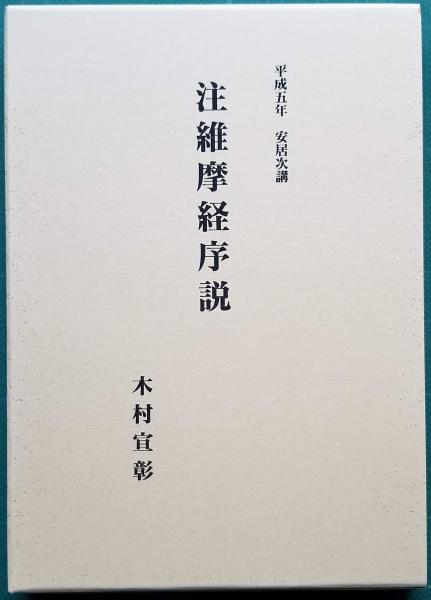 平成五年　安居次講
注維摩経序説
木村宣彰